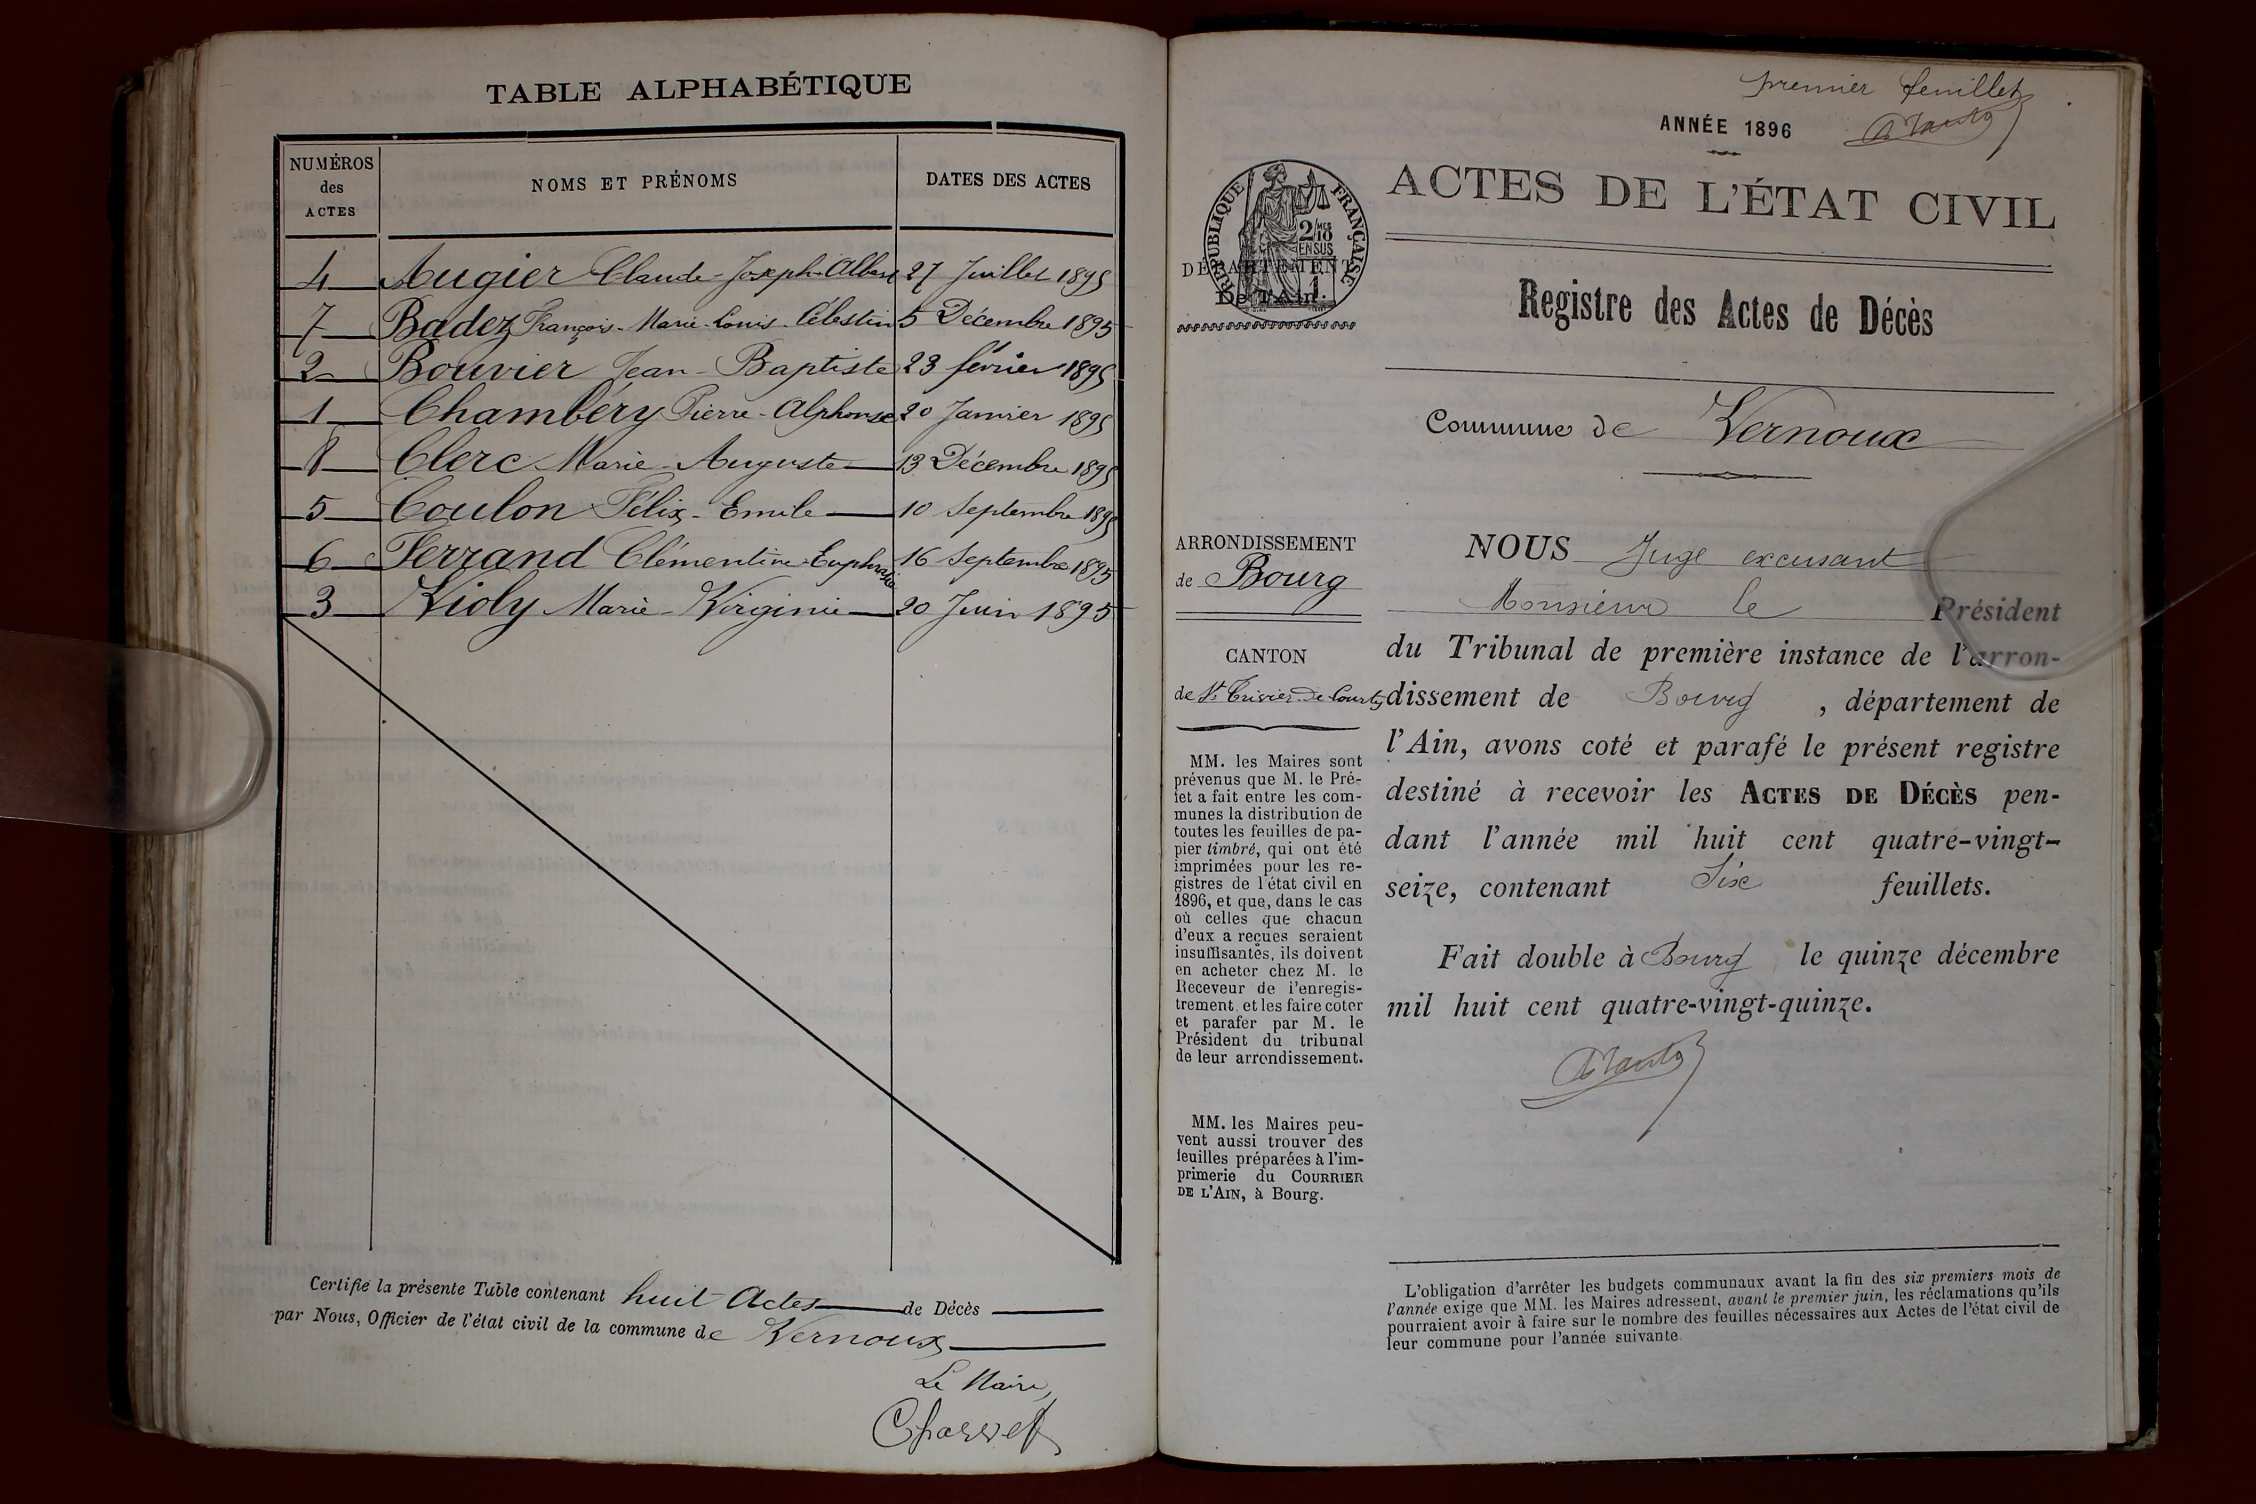 TABLE ALPHABÉTIQUE
NUMÉROS
des
ACTES
NOMS ET PRÉNOMS
DATES DES ACTES
4 Augier Claude-Joseph-Albert 27 Juillet 1895
7 Badez François-Marie-Louis-Célestin 5 Décembre 1895
2 Bouvier Jean-Baptiste 23 février 1895
1 Chambéry Pierre-Alphonse 20 Janvier 1895
8 Clerc Marie-Auguste 13 Décembre 1895
5 Coulon Félix-Emile 10 Septembre 1895
6 Ferrand Clémentine-Euphrasie 16 Septembre 1895
3 Violy Marie-Virginie 20 Juin 1895
Certifie la présente Table contenant huit Actes de Décès
par Nous, Officier de l'état civil de la commune de Vernoux
Le Maire,
premier feuillet
ANNÉE 1896
RÉPUBLIQUE FRANÇAISE
2/10 EN SUS
DÉPARTEMENT
De l'Ain.
ACTES DE L'ÉTAT CIVIL
Registre des Actes de Décès
Commune de Vernoux
ARRONDISSEMENT
de Bourg
CANTON
de St Trivier-de-Courtes
MM. les Maires sont
prévenus que M. le Pré-
fet a fait entre les com-
munes la distribution de
toutes les feuilles de pa-
pier timbré, qui ont été
imprimées pour les re-
gistres de l'état civil en
1896, et que, dans le cas
où celles que chacun
d'eux a reçues seraient
insuffisantes, ils doivent
en acheter chez M. le
Receveur de l'enregis-
trement et les faire coter
et parafer par M. le
Président du tribunal
de leur arrondissement.
MM. les Maires peu-
vent aussi trouver des
feuilles préparées à l'im-
primerie du COURRIER
DE L'AIN, à Bourg.
NOUS Juge excusant
Monsieur le Président
du Tribunal de première instance de l'arron-
dissement de Bourg , département de
l'Ain, avons coté et parafé le présent registre
destiné à recevoir les ACTES DE DÉCÈS pen-
dant l'année mil huit cent quatre-vingt-
seize, contenant Six feuillets.
Fait double à Bourg le quinze décembre
mil huit cent quatre-vingt-quinze.
L'obligation d'arrêter les budgets communaux avant la fin des six premiers mois de
l'année exige que MM. les Maires adressent, avant le premier juin, les réclamations qu'ils
pourraient avoir à faire sur le nombre des feuilles nécessaires aux Actes de l'état civil de
leur commune pour l'année suivante.